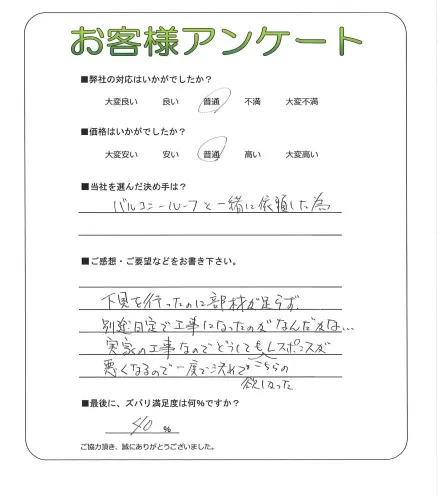 お客様アンケート
■弊社の対応はいかがでしたか？
大変良い 良い 普通 不満 大変不満
■価格はいかがでしたか？
大変安い 安い 普通 高い 大変高い
■当社を選んだ決め手は？
バルコニールーフと一緒に依頼した為
■ご感想・ご要望などをお書き下さい。
下見を行ったのに部材が足らず、
別途日定で工事になったのがなんだかな…
実家の工事なのでどうしてもレスポンスが
悪くなるので一度で決めて
こちらの
欲しなった
■最後に、ズバリ満足度は何%ですか？
40 %
ご協力頂き、誠にありがとうございました。